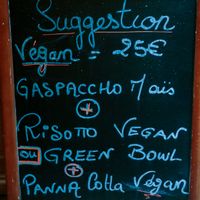 Suggestion
Végan = 25€
GASPACCHO Maïs
+
RISOTTO VEGAN
ou GREEN BOWL
+
PANNA Cotta Vegan